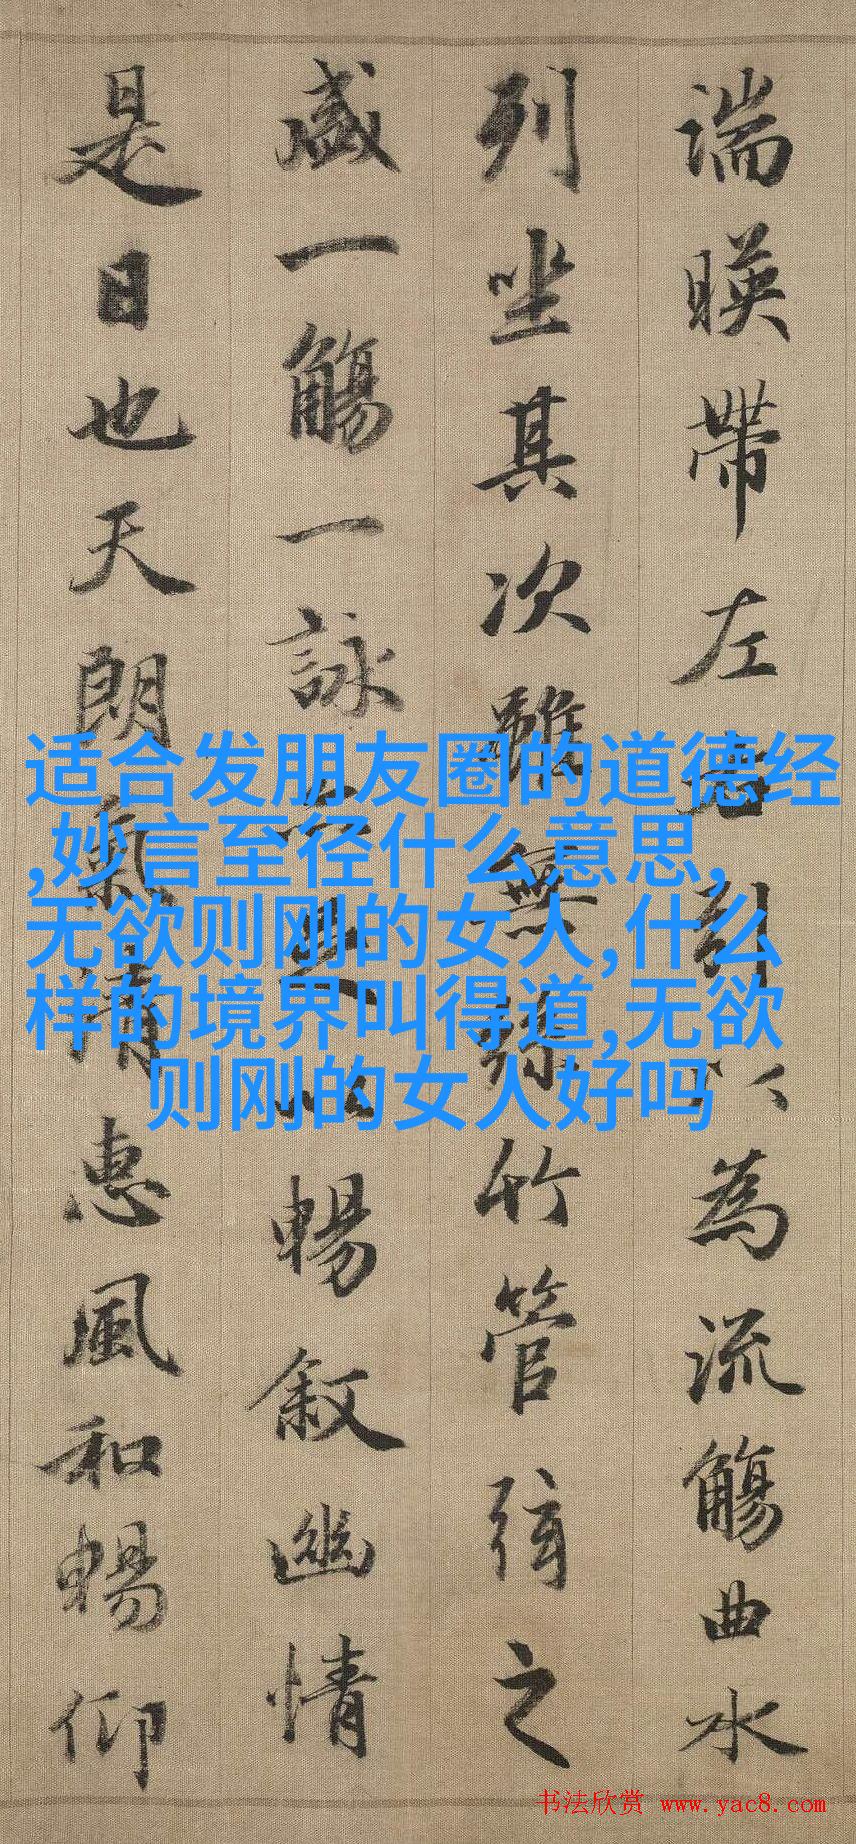 湍暎帶左右引以為流觴曲水
列坐其次雖無絲竹管弦之
盛一觴一詠亦足以暢叙幽情
是日也天朗氣清惠風和暢仰
适合发朋友圈的道德经
,妙言至径什么意思,
无欲则刚的女人,什么
样的境界叫得道,无欲
则刚的女人好吗
书法欣赏 www.yac8.com